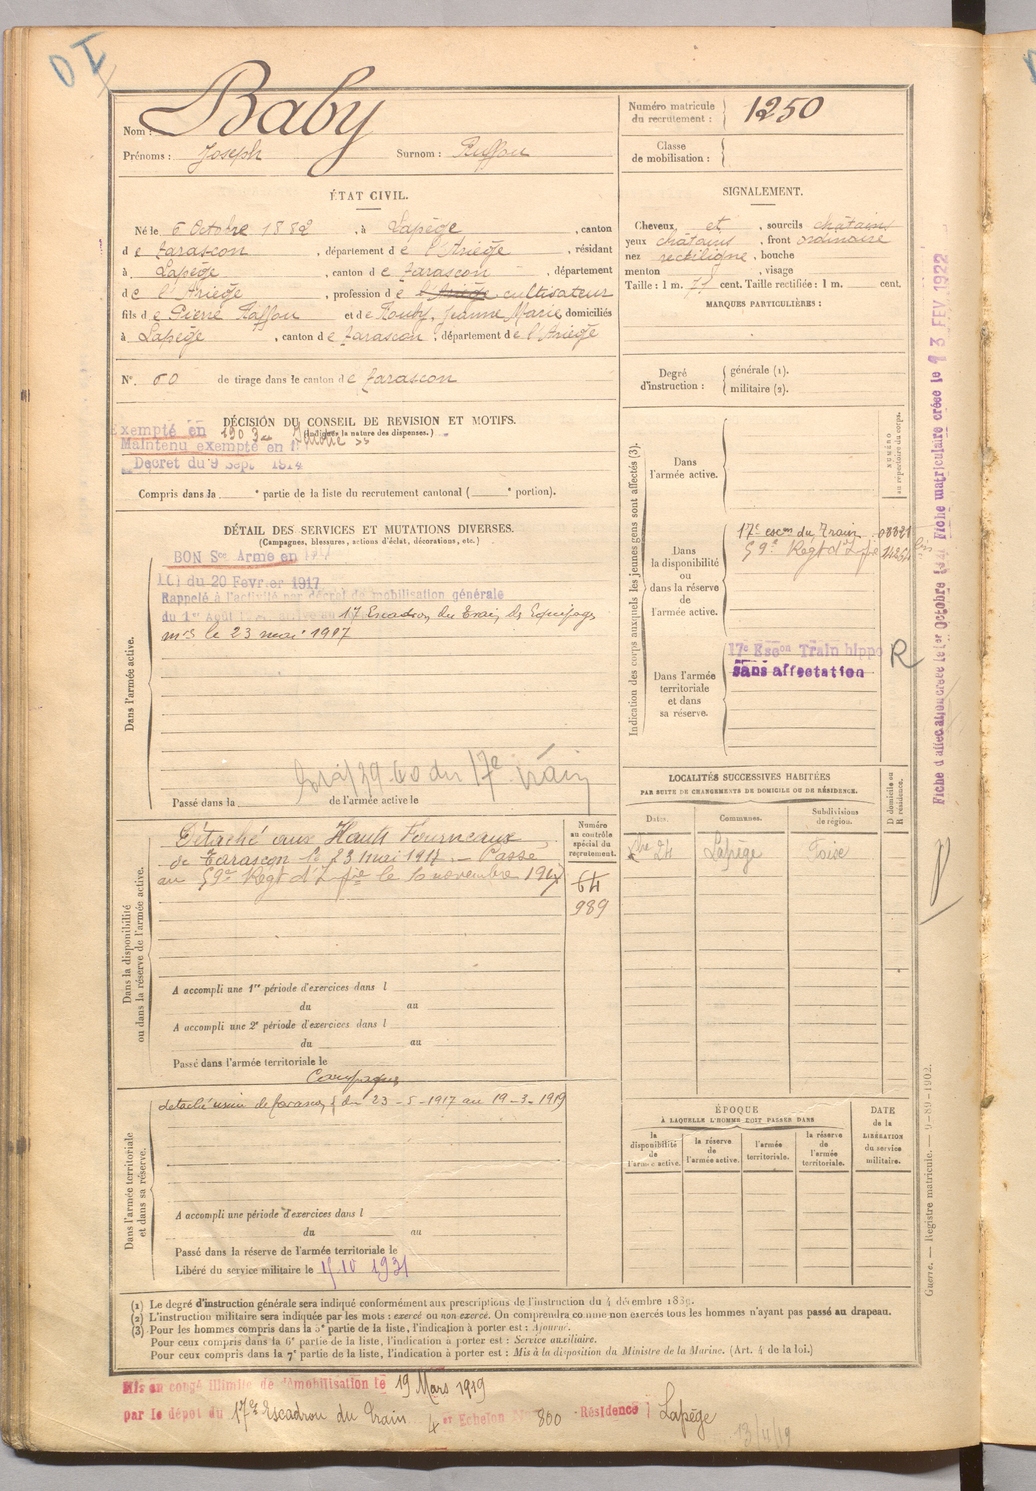 D I
Nom : Baby
Prénoms : Joseph Surnom : Buffou
Numéro matricule du recrutement : 1250
Classe de mobilisation :
ÉTAT CIVIL.
Né le 6 Octobre 1882, à Lapège, canton
de Tarascon, département de l'Ariège, résidant
à Lapège, canton de Tarascon, département
de l'Ariège, profession de cultivateur
fils de Pierre Raffou et de Fouby, Jeanne Marie, domiciliés
à Lapège, canton de Tarascon, département de l'Ariège
N° 60 de tirage dans le canton de Tarascon
SIGNALEMENT.
Cheveux et, sourcils châtains
yeux châtains, front ordinaire
nez rectiligne, bouche
menton, visage
Taille : 1 m. 77 cent. Taille rectifiée : 1 m. cent.
MARQUES PARTICULIÈRES :
Degré d'instruction : générale (1). militaire (2).
DÉCISION DU CONSEIL DE REVISION ET MOTIFS.
(Indiquer la nature des dispenses.)
Exempté en 1903
Maintenu exempté en
Décret du 9 Sept 1914
Compris dans la e partie de la liste du recrutement cantonal ( e portion).
DÉTAIL DES SERVICES ET MUTATIONS DIVERSES.
(Campagnes, blessures, actions d'éclat, décorations, etc.)
Dans l'armée active.
BON Sce Armé en 1917
Loi du 20 Fevrier 1917
Rappelé à l'activité par décret de mobilisation générale
du 1er Août 17 Escadron du Train des Equipages
mrs le 23 mai 1917
17e Train
Passé dans la de l'armée active le
Indication des corps auxquels les jeunes gens sont affectés (3).
NUMÉRO au répertoire du corps.
Dans l'armée active.
Dans la disponibilité ou dans la réserve de l'armée active.
17e escon du Train
59e Regt d'Infie
Dans l'armée territoriale et dans sa réserve.
17e Escon Train hippo R
Sans affectation
Fiche d'affectation créée le 1er Octobre Fiche matriculaire créée le 13 FEV 1922
LOCALITÉS SUCCESSIVES HABITÉES
PAR SUITE DE CHANGEMENTS DE DOMICILE OU DE RÉSIDENCE.
Dates. Communes. Subdivisions de région. D domicile ou R résidence.
24 Lapège Foix
Dans la disponibilité ou dans la réserve de l'armée active.
Numéro au contrôle spécial du recrutement.
Détaché aux Hauts Fourneaux
de Tarascon le 23 mai 1917. — Passé
au 59e Regt d'Infie le 10 novembre 1917
64
989
A accompli une 1re période d'exercices dans l
du au
A accompli une 2e période d'exercices dans l
du au
Passé dans l'armée territoriale le
Campagnes
Dans l'armée territoriale et dans sa réserve.
détaché usine de Tarascon du 23-5-1917 au 19-3-1919
A accompli une période d'exercices dans l
du au
Passé dans la réserve de l'armée territoriale le
Libéré du service militaire le 15 10 1931
ÉPOQUE
À LAQUELLE L'HOMME DOIT PASSER DANS
la disponibilité de l'armée active.
la réserve de l'armée active.
l'armée territoriale.
la réserve de l'armée territoriale.
DATE de la LIBÉRATION du service militaire.
Guerre. — Registre matricule. — 9-89-1902.
(1) Le degré d'instruction générale sera indiqué conformément aux prescriptions de l'instruction du 4 décembre 1889.
(2) L'instruction militaire sera indiquée par les mots : exercé ou non exercé. On comprendra comme non exercés tous les hommes n'ayant pas passé au drapeau.
(3) Pour les hommes compris dans la 5e partie de la liste, l'indication à porter est : Ajourné.
Pour ceux compris dans la 6e partie de la liste, l'indication à porter est : Service auxiliaire.
Pour ceux compris dans la 7e partie de la liste, l'indication à porter est : Mis à la disposition du Ministre de la Marine. (Art. 4 de la loi.)
Mis en congé illimité de démobilisation le 19 Mars 1919
par le dépôt du 17e Escadron du Train 4er Echelon N° 800 - Résidence : Lapège
13/4/19